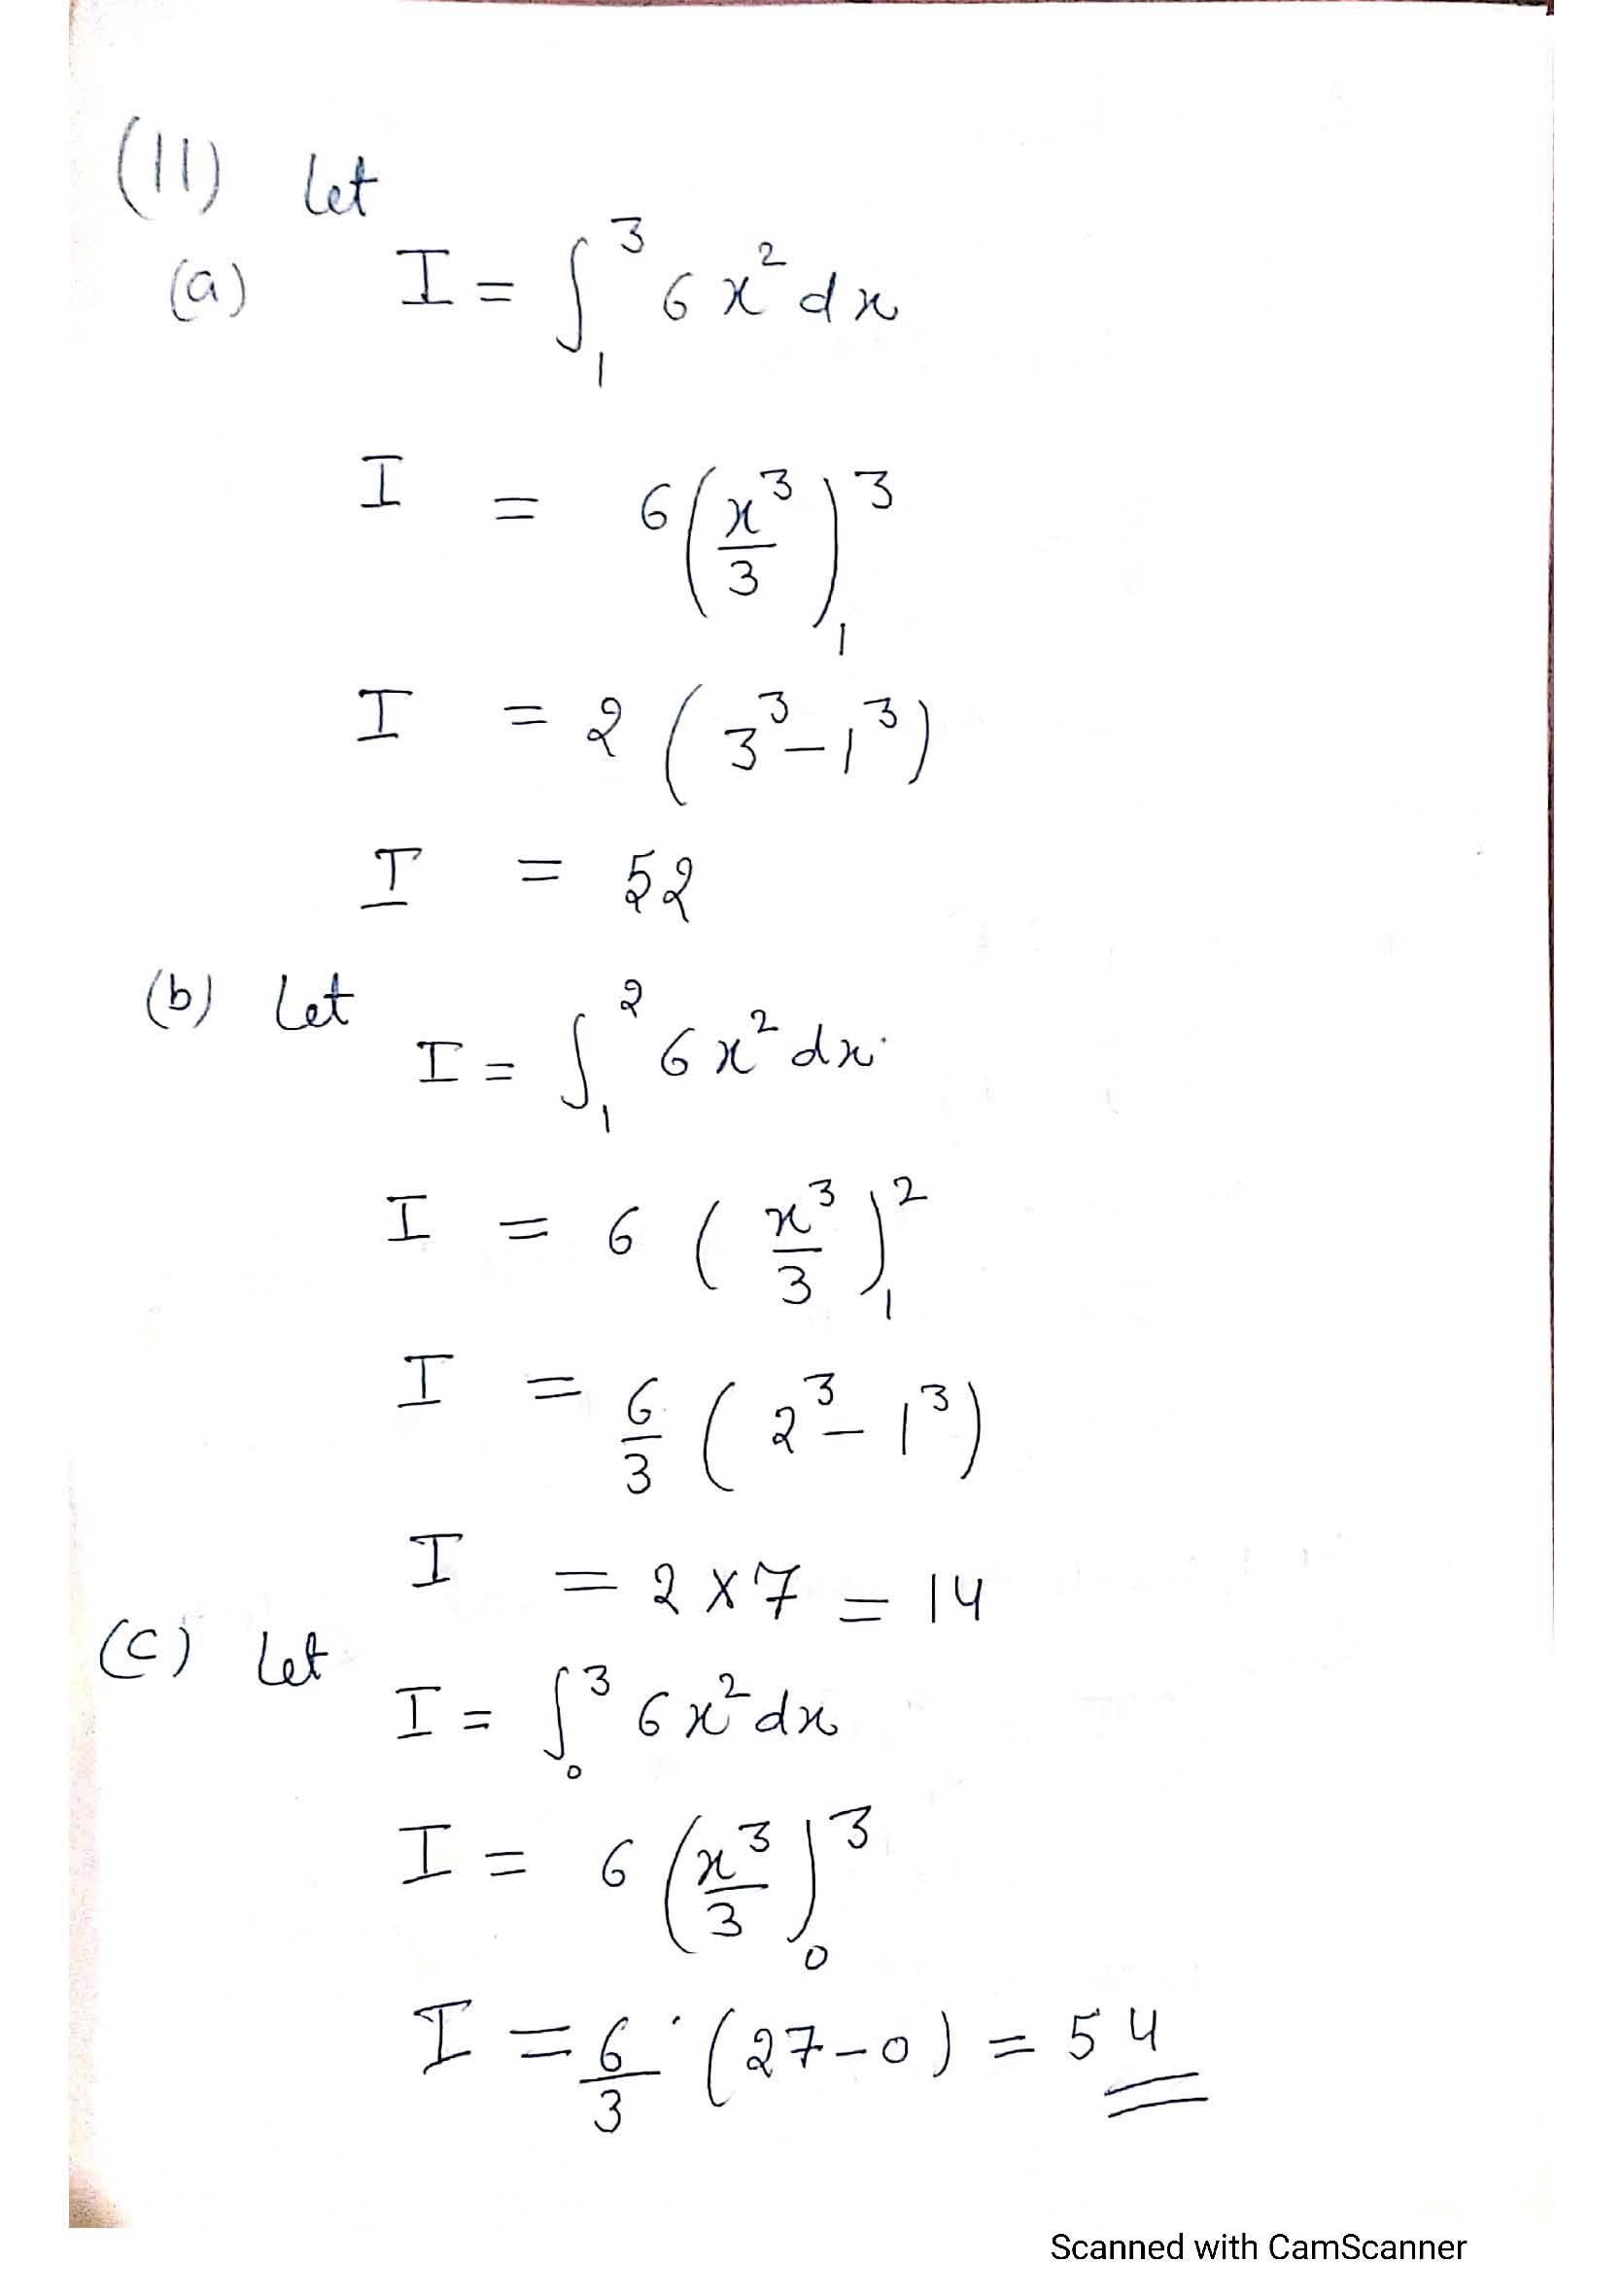 (11) Let
(a) I = ∫₁³ 6x² dx
I = 6(x³/3)₁³
I = 2(3³-1³)
I = 52
(b) Let
I = ∫₁² 6x² dx.
I = 6(x³/3)₁²
I = 6/3 (2³-1³)
I = 2×7 = 14
(c) Let
I = ∫₀³ 6x² dx
I = 6(x³/3)₀³
I = 6/3 · (27-0) = 54
Scanned with CamScanner